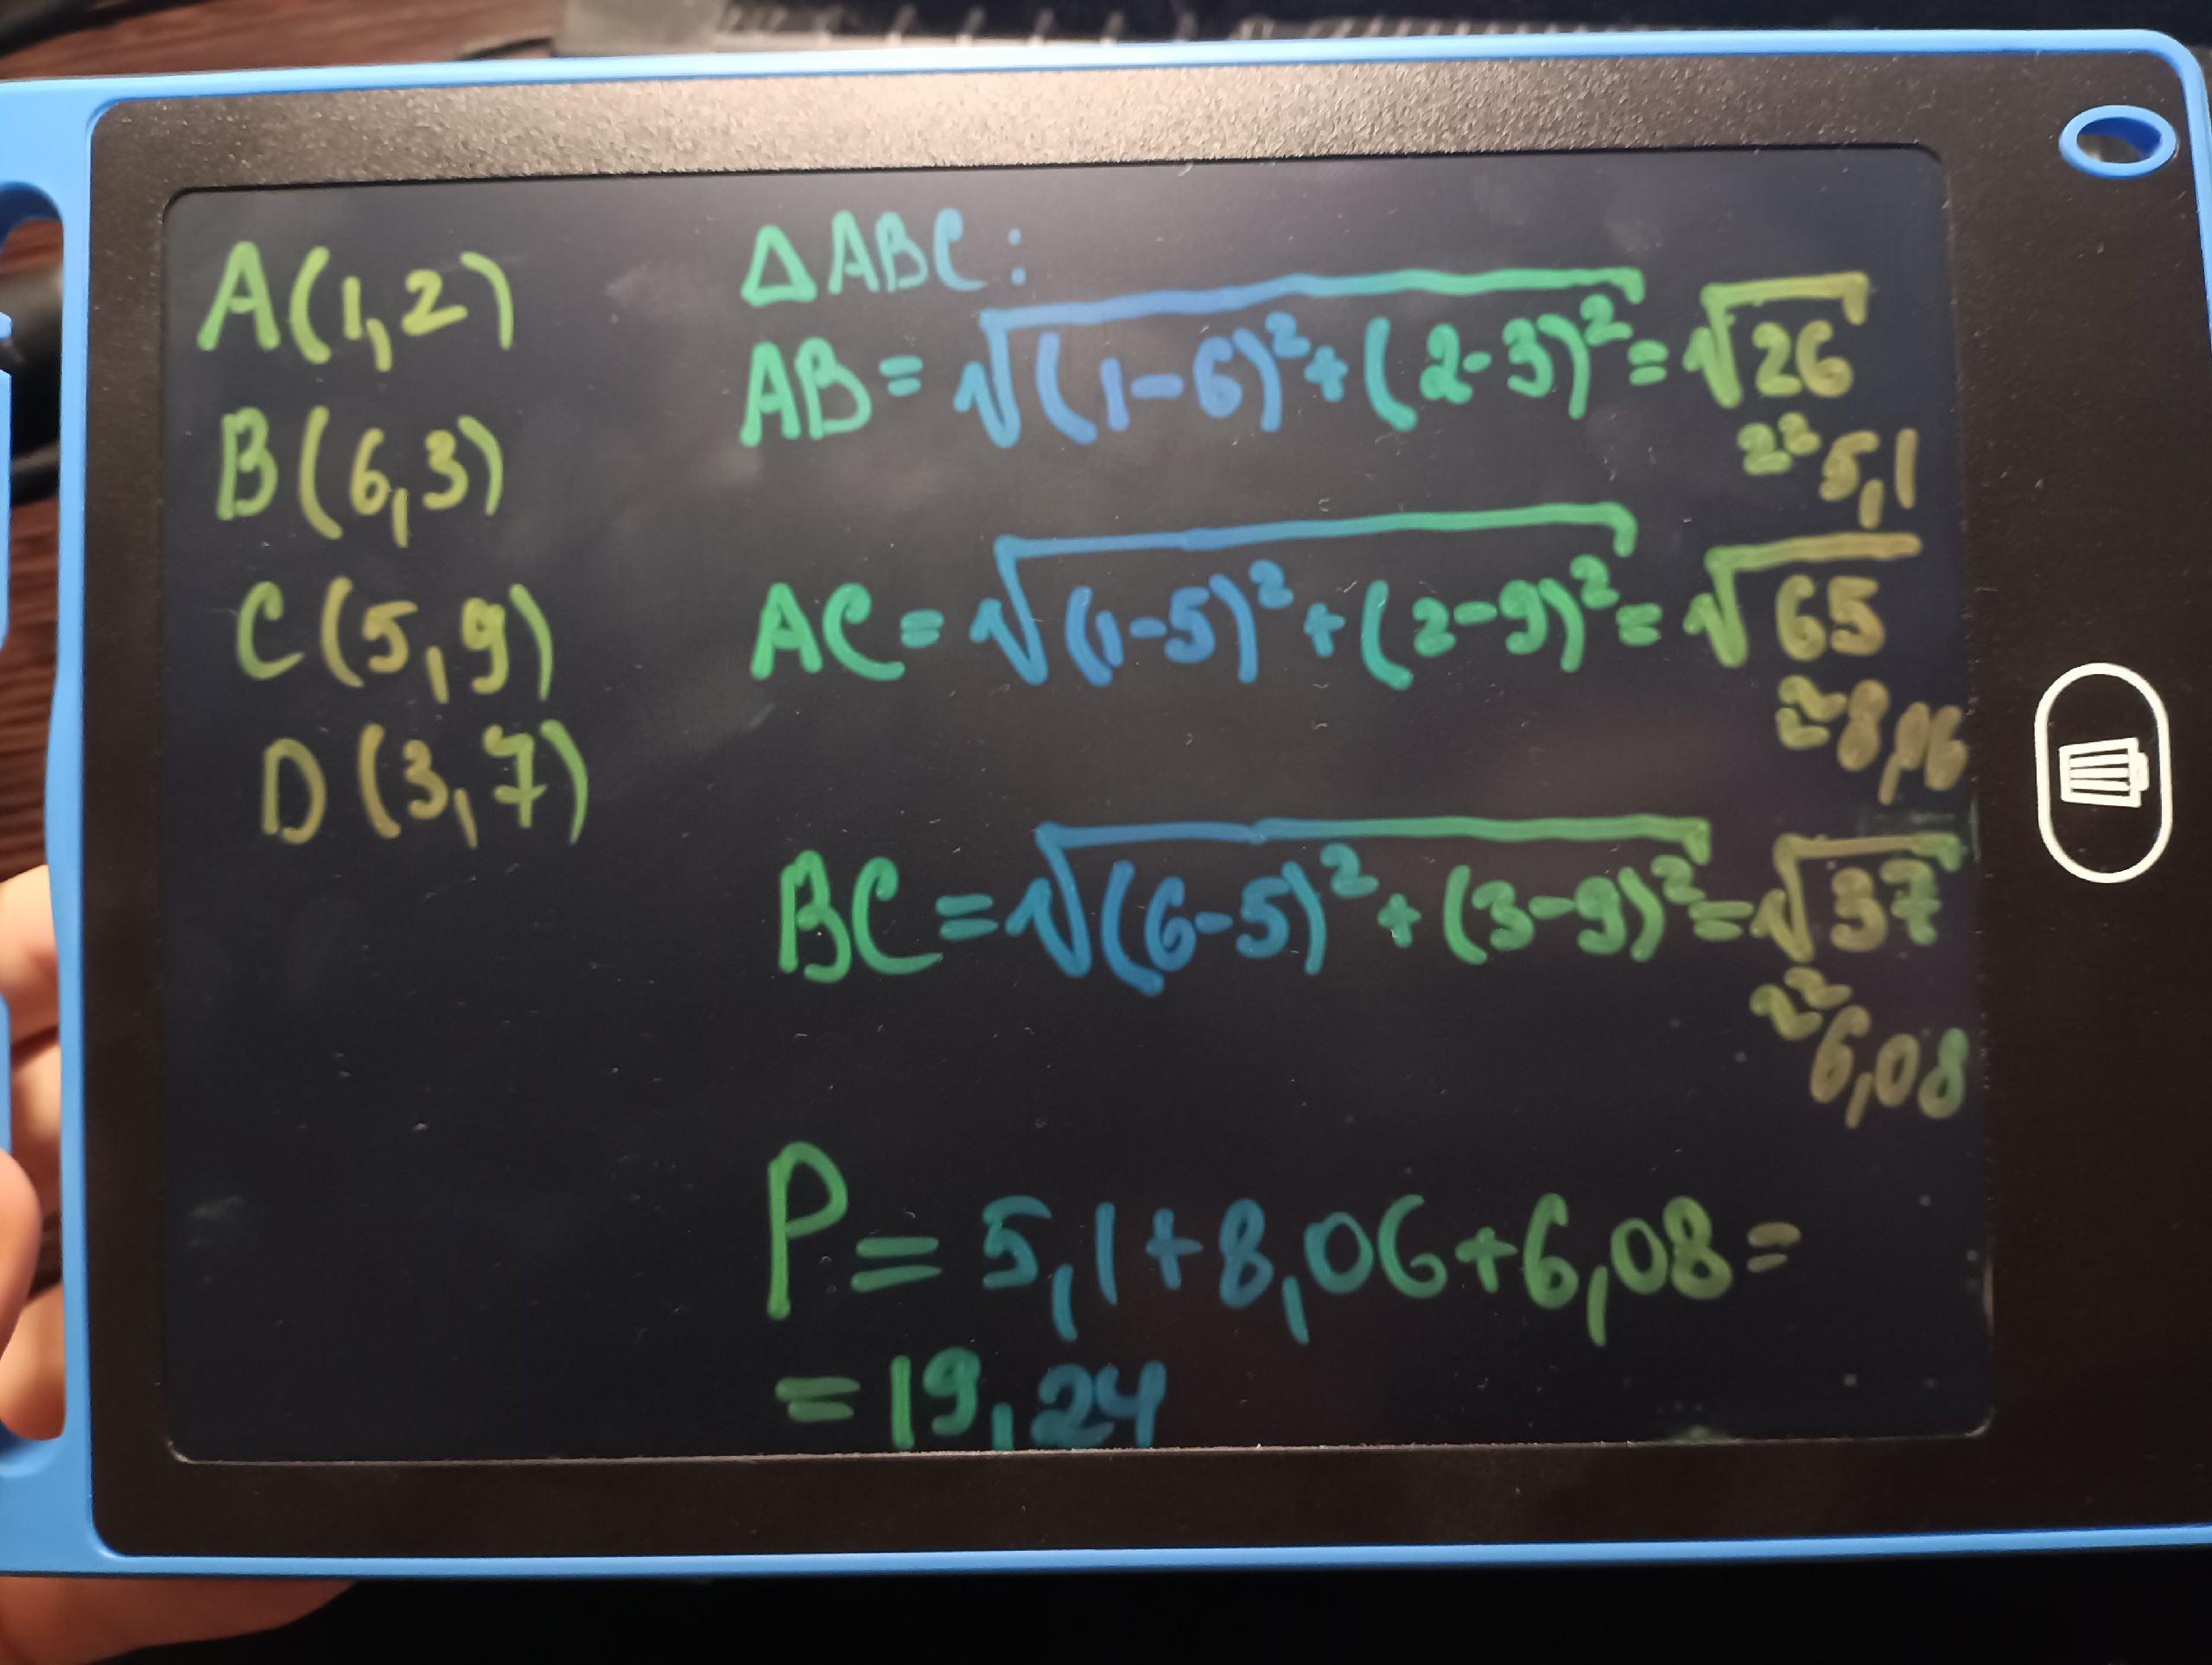 A(1,2)
B(6,3)
C(5,9)
D(3,7)
ΔABC:
AB=√(1-6)²+(2-3)²=√26
≈5,1
AC=√(1-5)²+(2-9)²=√65
≈8,06
BC=√(6-5)²+(3-9)²=√37
≈6,08
P=5,1+8,06+6,08=
=19,24